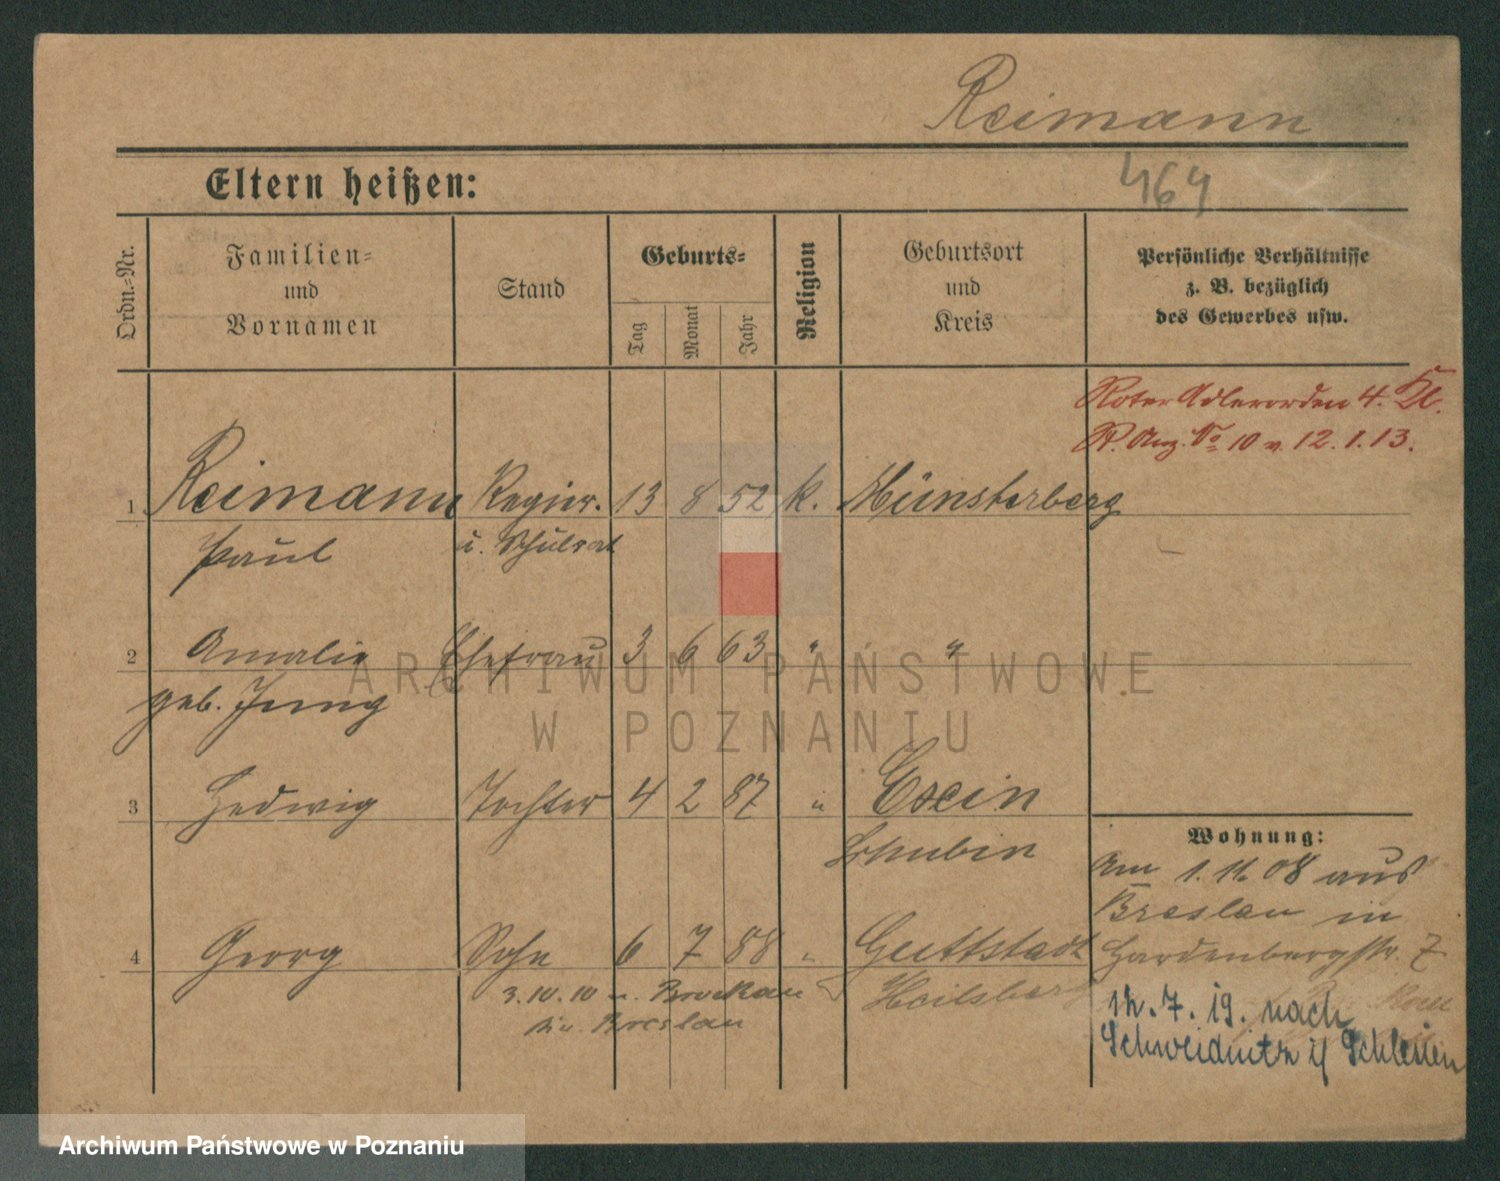 Reimann
464
Eltern heißen:
Ordn.-Nr.
Familien-
und
Vornamen
Stand
Geburts-
Tag
Monat
Jahr
Religion
Geburtsort
und
Kreis
Persönliche Verhältnisse
z. B. bezüglich
des Gewerbes usw.
Roter Adlerorden 4. Kl.
R. Anz. No 10 v. 12.1.13.
1 Reimann Regier. 13 8 52 k. Münsterberg
Paul u. Schulrat
2 Amalie Ehefrau 3 6 63 " "
geb. Jung
3 Hedwig Tochter 4 2 87 " Exin
Schubin
Wohnung:
Am 1.11.08 aus
Breslau in
Hardenbergstr. 7
4 Georg Sohn 6 7 88 " Guttstadt
Heilsberg
3.10.10 n. Brockau
Breslau
7. 19. nach
Schweidnitz i/ Schlesien
ARCHIWUM PAŃSTWOWE
W POZNANIU
Archiwum Państwowe w Poznaniu